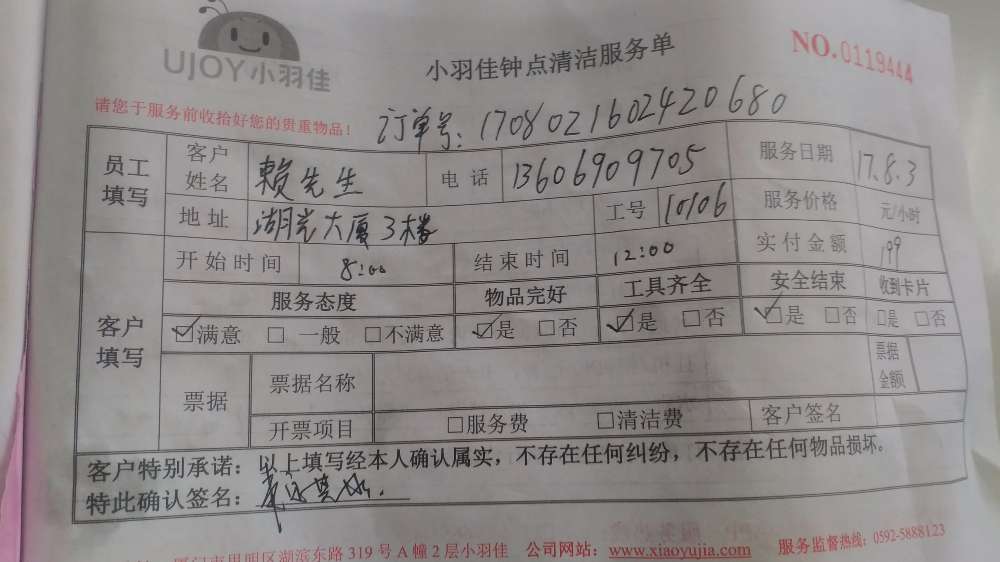 UJOY小羽佳
小羽佳钟点清洁服务单
NO.0119444
请您于服务前收拾好您的贵重物品!
订单号:1708021602420680
员工填写 客户姓名 赖先生 电话 13606909705 服务日期 17.8.3
地址 湖光大厦3楼 工号 10106 服务价格 元/小时
开始时间 8:00 结束时间 12:00 实付金额 199
客户填写 服务态度 物品完好 工具齐全 安全结束 收到卡片
☑满意 □一般 □不满意 ☑是 □否 ☑是 □否 ☑是 □否 □是 □否
票据 票据名称 票据金额
开票项目 □服务费 □清洁费 客户签名
客户特别承诺:以上填写经本人确认属实,不存在任何纠纷,不存在任何物品损坏。
特此确认签名:
厦门市思明区湖滨东路319号A幢2层小羽佳 公司网站:www.xiaoyujia.com 服务监督热线:0592-5888123